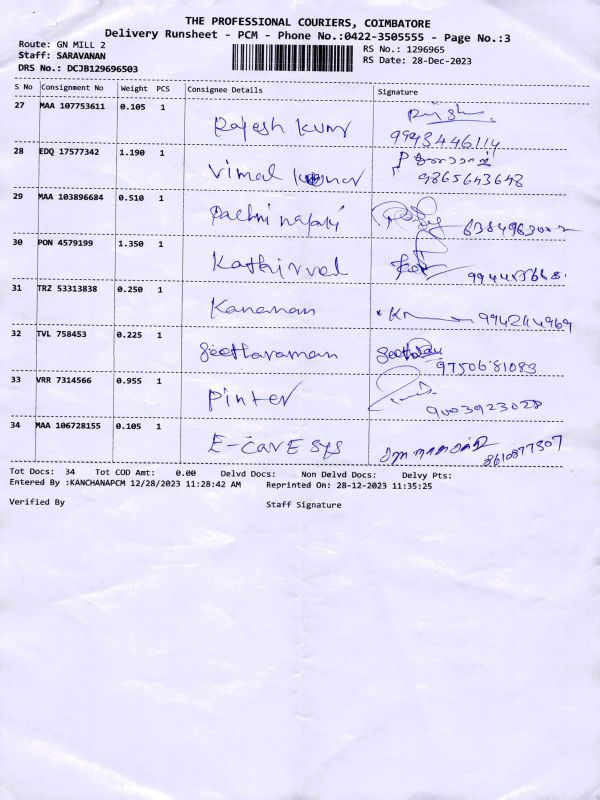 THE PROFESSIONAL COURIERS, COIMBATORE
Delivery Runsheet - PCM - Phone No.:0422-3505555 - Page No.:3
Route: GN MILL 2
RS No.: 1296965
Staff: SARAVANAN
RS Date: 28-Dec-2023
DRS No.: DCJB129696503
S No Consignment No Weight PCS Consignee Details Signature
27 MAA 107753611 0.105 1
Rajesh kumr
9943446114
28 EDQ 17577342 1.190 1
Vimal
9865643648
29 MAA 103896684 0.510 1
30 PON 4579199 1.350 1
Kathirvel
31 TRZ 53313838 0.250 1
Kananan
32 TVL 758453 0.225 1
Seetharaman
9750681083
33 VRR 7314566 0.955 1
Pinter
9003923028
34 MAA 106728155 0.105 1
E-CarE sys
8610877307
Tot Docs: 34 Tot COD Amt: 0.00 Delvd Docs: Non Delvd Docs: Delvy Pts:
Entered By :KANCHANAPCM 12/28/2023 11:28:42 AM Reprinted On: 28-12-2023 11:35:25
Verified By Staff Signature